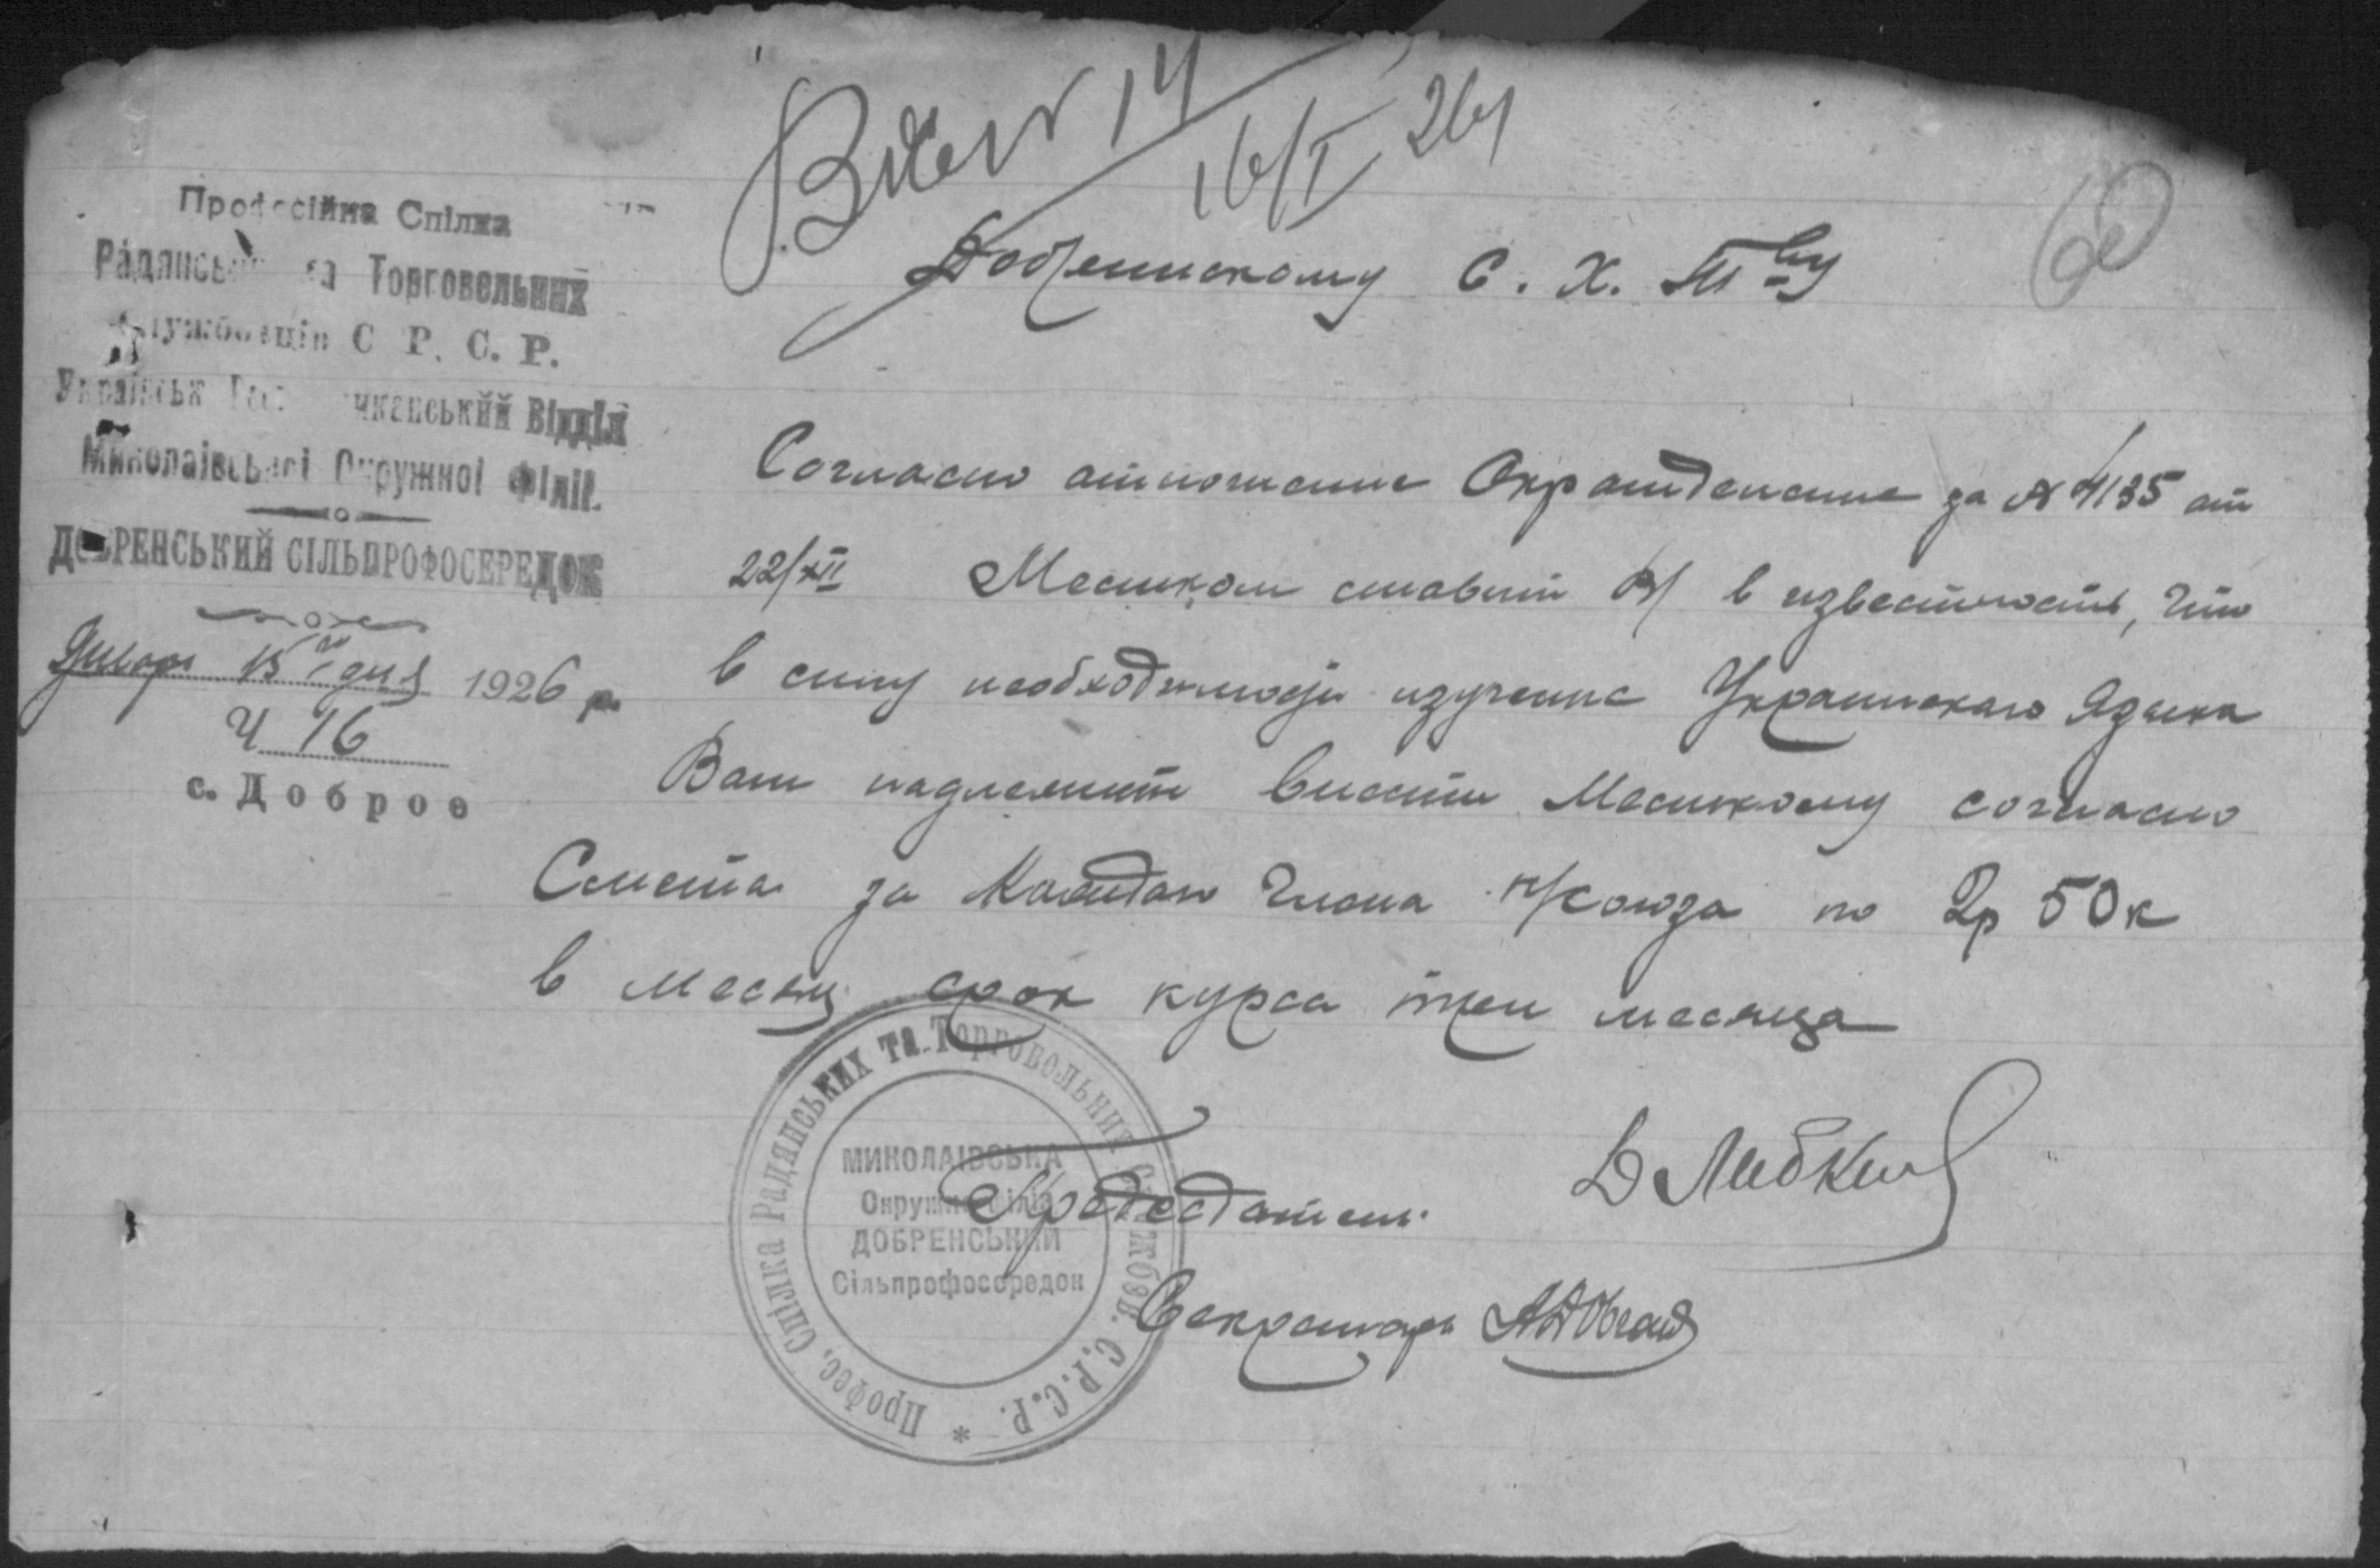 Вх N 14
16/I 26
60
Професійна Спілка
Радянських та Торговельних
Службовців С. Р. С. Р.
Миколаївської Окружної Філії.
ДОБРЕНСЬКИЙ СІЛЬПРОФОСЕРЕДОК
Январ 15 дня 1926 р.
Ч 16
с. Доброе
Добренскому С. Х. Тву
Согласно отношение Окротделение за № 4135 от
22/XII Местком ставит В/ в известность, что
в силу необходимости изучение Украинского Языка
Вам надлежит внести Месткому согласно
Смета за Каждого Члена п/союза по 2р 50к
в месяц срок курса три месяца
Председатель
Секретарь
Профес. Спілка Радянських та Торговольних Службов. С.Р.С.Р. *
МИКОЛАІВСЬКА
Окружна Філія
ДОБРЕНСЬКИЙ
Сільпрофосередок